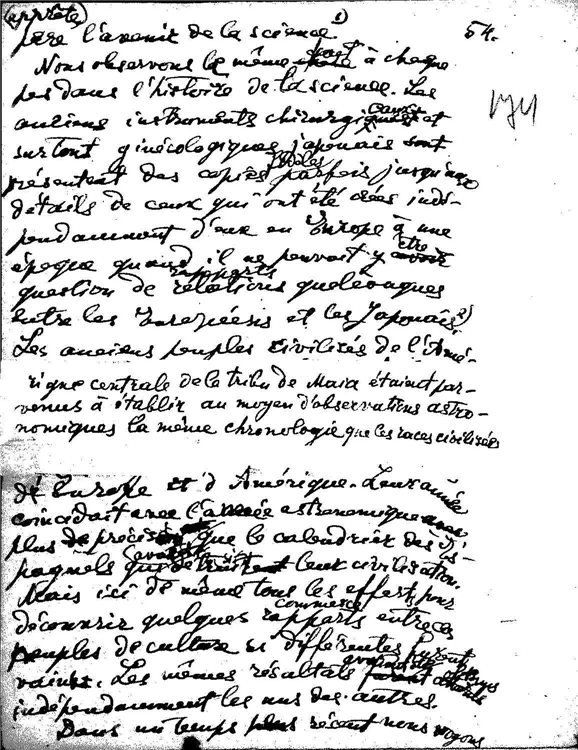 (apprête)
père l'avenir de la science 1) 54.
Nous observons le même fait à chaque
pas dans l'histoire de la science. Les 174
anciens instruments chirurgicaux et
surtout ginécologiques japonais
présentent des copies fidèles parfois jusqu'aux
détails de ceux qui ont été crées indé-
pendamment d'eux en Europe à une
époque quand il ne pouvait y être
question de rapports quelconques
entre les Européens et les Japonais 2).
Les anciens peuples civilisés de l'Amé-
rique centrale de la tribu de Maia étaint par-
venus à établir au moyen d'observations astro-
nomiques la même chronologie que les races civilisées
de Europe et d'Amérique. Leur année
coincidait avec l'année astronomique avec
plus de précision que le calendrier des Es-
pagnols qui leur civilisation.
Mais ici de même tous les efforts pour
découvrir quelques rapports commerce entre ces
peuples de culture si différentes furent
vains. Les mêmes résultats
indépendamment les uns des autres.
Dans un temps plus récent nous voyons